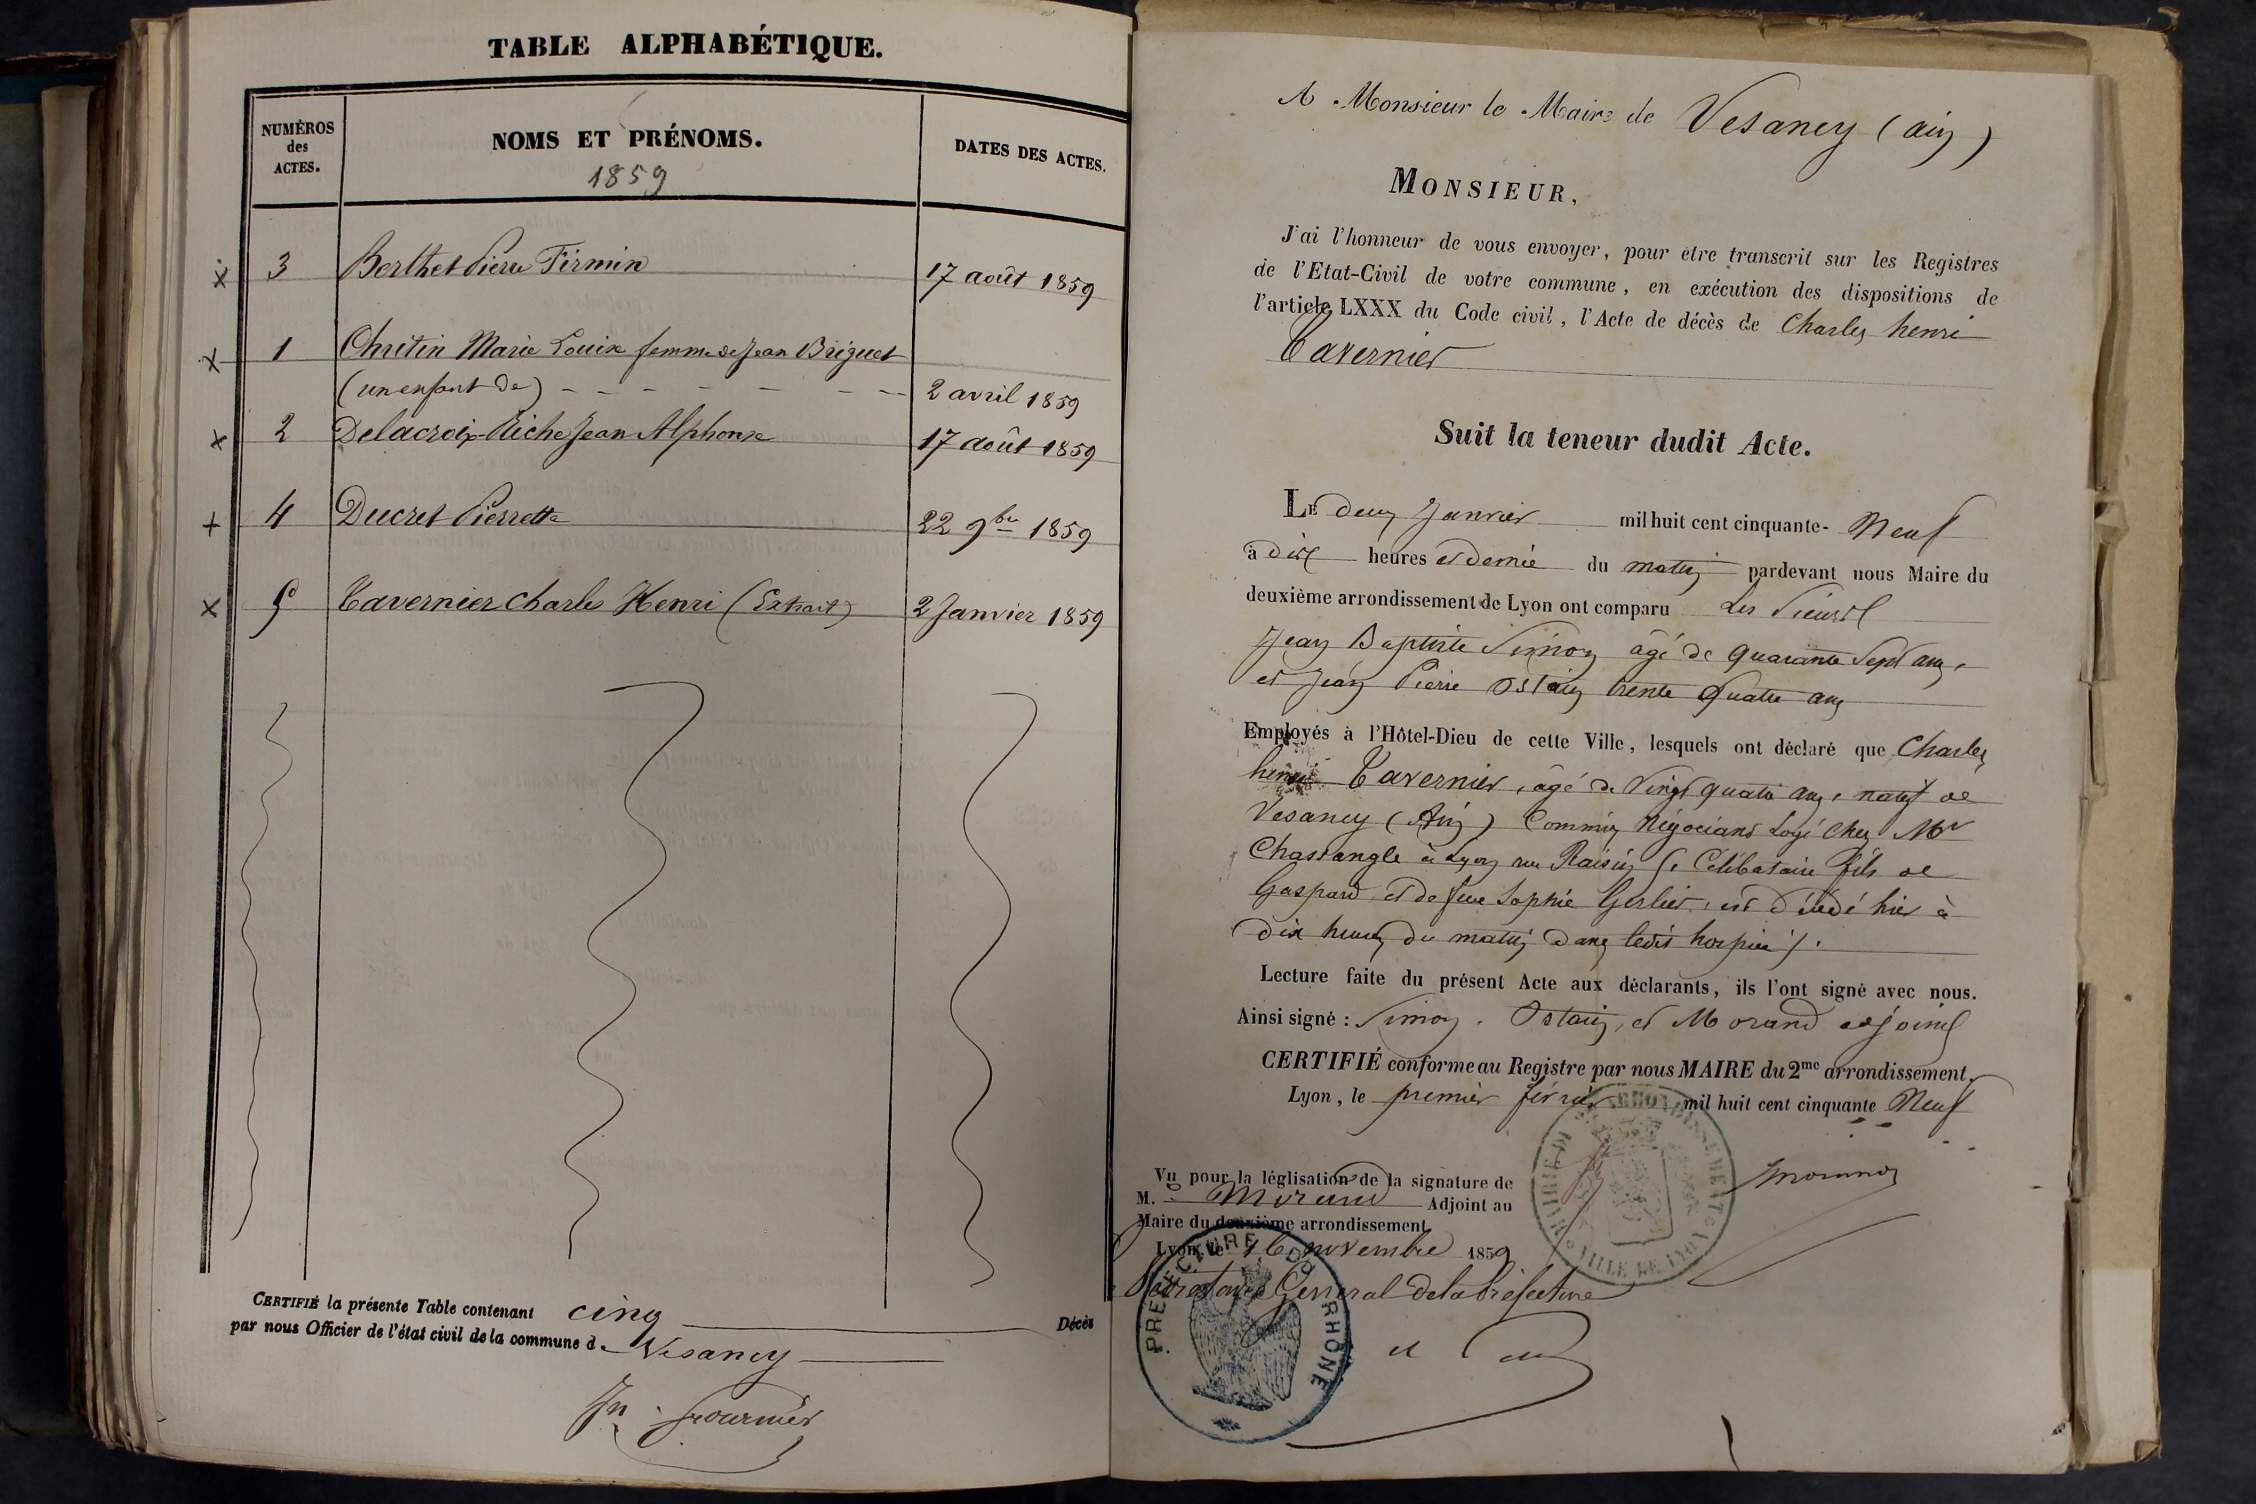 TABLE ALPHABÉTIQUE.
NUMÉROS des ACTES.
NOMS ET PRÉNOMS.
DATES DES ACTES.
1859
3 Berthet Pierre Firmin 17 août 1859
1 Chritin Marie Louise femme de Jean Briguet
(un enfant de) 2 avril 1859
2 Delacroix-Riche Jean Alphonse 17 août 1859
4 Ducret Pierrette 22 9bre 1859
5 Tavernier Charles Henri (Extrait) 2 Janvier 1859
CERTIFIÉ la présente Table contenant cinq Décès
par nous Officier de l'état civil de la commune d. Vesancy
Jn. Fournier
A Monsieur le Maire de Vesancy (ain)
MONSIEUR,
J'ai l'honneur de vous envoyer, pour être transcrit sur les Registres
de l'Etat-Civil de votre commune, en exécution des dispositions de
l'article LXXX du Code civil, l'Acte de décès de Charles henri
Tavernier
Suit la teneur dudit Acte.
LE deux Janvier mil huit cent cinquante- Neuf
à dix heures et demie du matin pardevant nous Maire du
deuxième arrondissement de Lyon ont comparu Les Sieurs
Jean Baptiste Simon âgé de quarante Sept ans,
et Jean Pierre Ostain trente quatre ans
Employés à l'Hôtel-Dieu de cette Ville, lesquels ont déclaré que Charles
henri Tavernier, âgé de Vingt quatre ans, natif de
Vesancy (Ain) Commis Négociant Logé chez Mr
Chassangle à Lyon rue Raisin Célibataire fils de
Gaspard, et de feue Sophie Gerlier, est décédé hier à
dix heures du matin dans ledit hospice.
Lecture faite du présent Acte aux déclarants, ils l'ont signé avec nous.
Ainsi signé : Simon. Ostain, et Morand adjoint
CERTIFIÉ conforme au Registre par nous MAIRE du 2me arrondissement.
Lyon, le premier février mil huit cent cinquante Neuf
Vu pour la législation de la signature de
M. Morand Adjoint au
Maire du deuxième arrondissement
Lyon, le 16 novembre 1859
Secrétaire Général de la Préfecture
PREFECTURE DU RHÔNE
MAIRIE DU 2e ARRONDISSEMENT
VILLE DE LYON